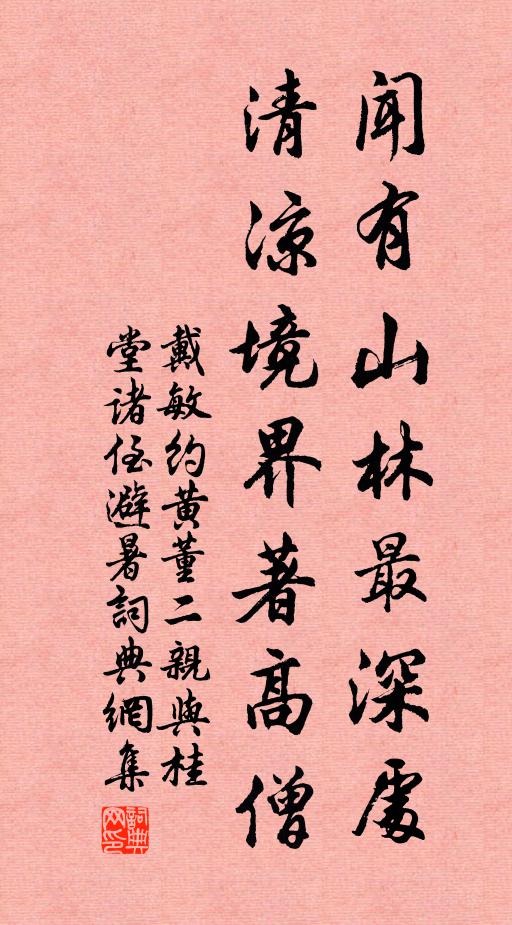 闻有山林最深處
清涼境界著高僧
戴敏約黃董二親與桂
堂诸侄避暑詞典網集
詞典
网印